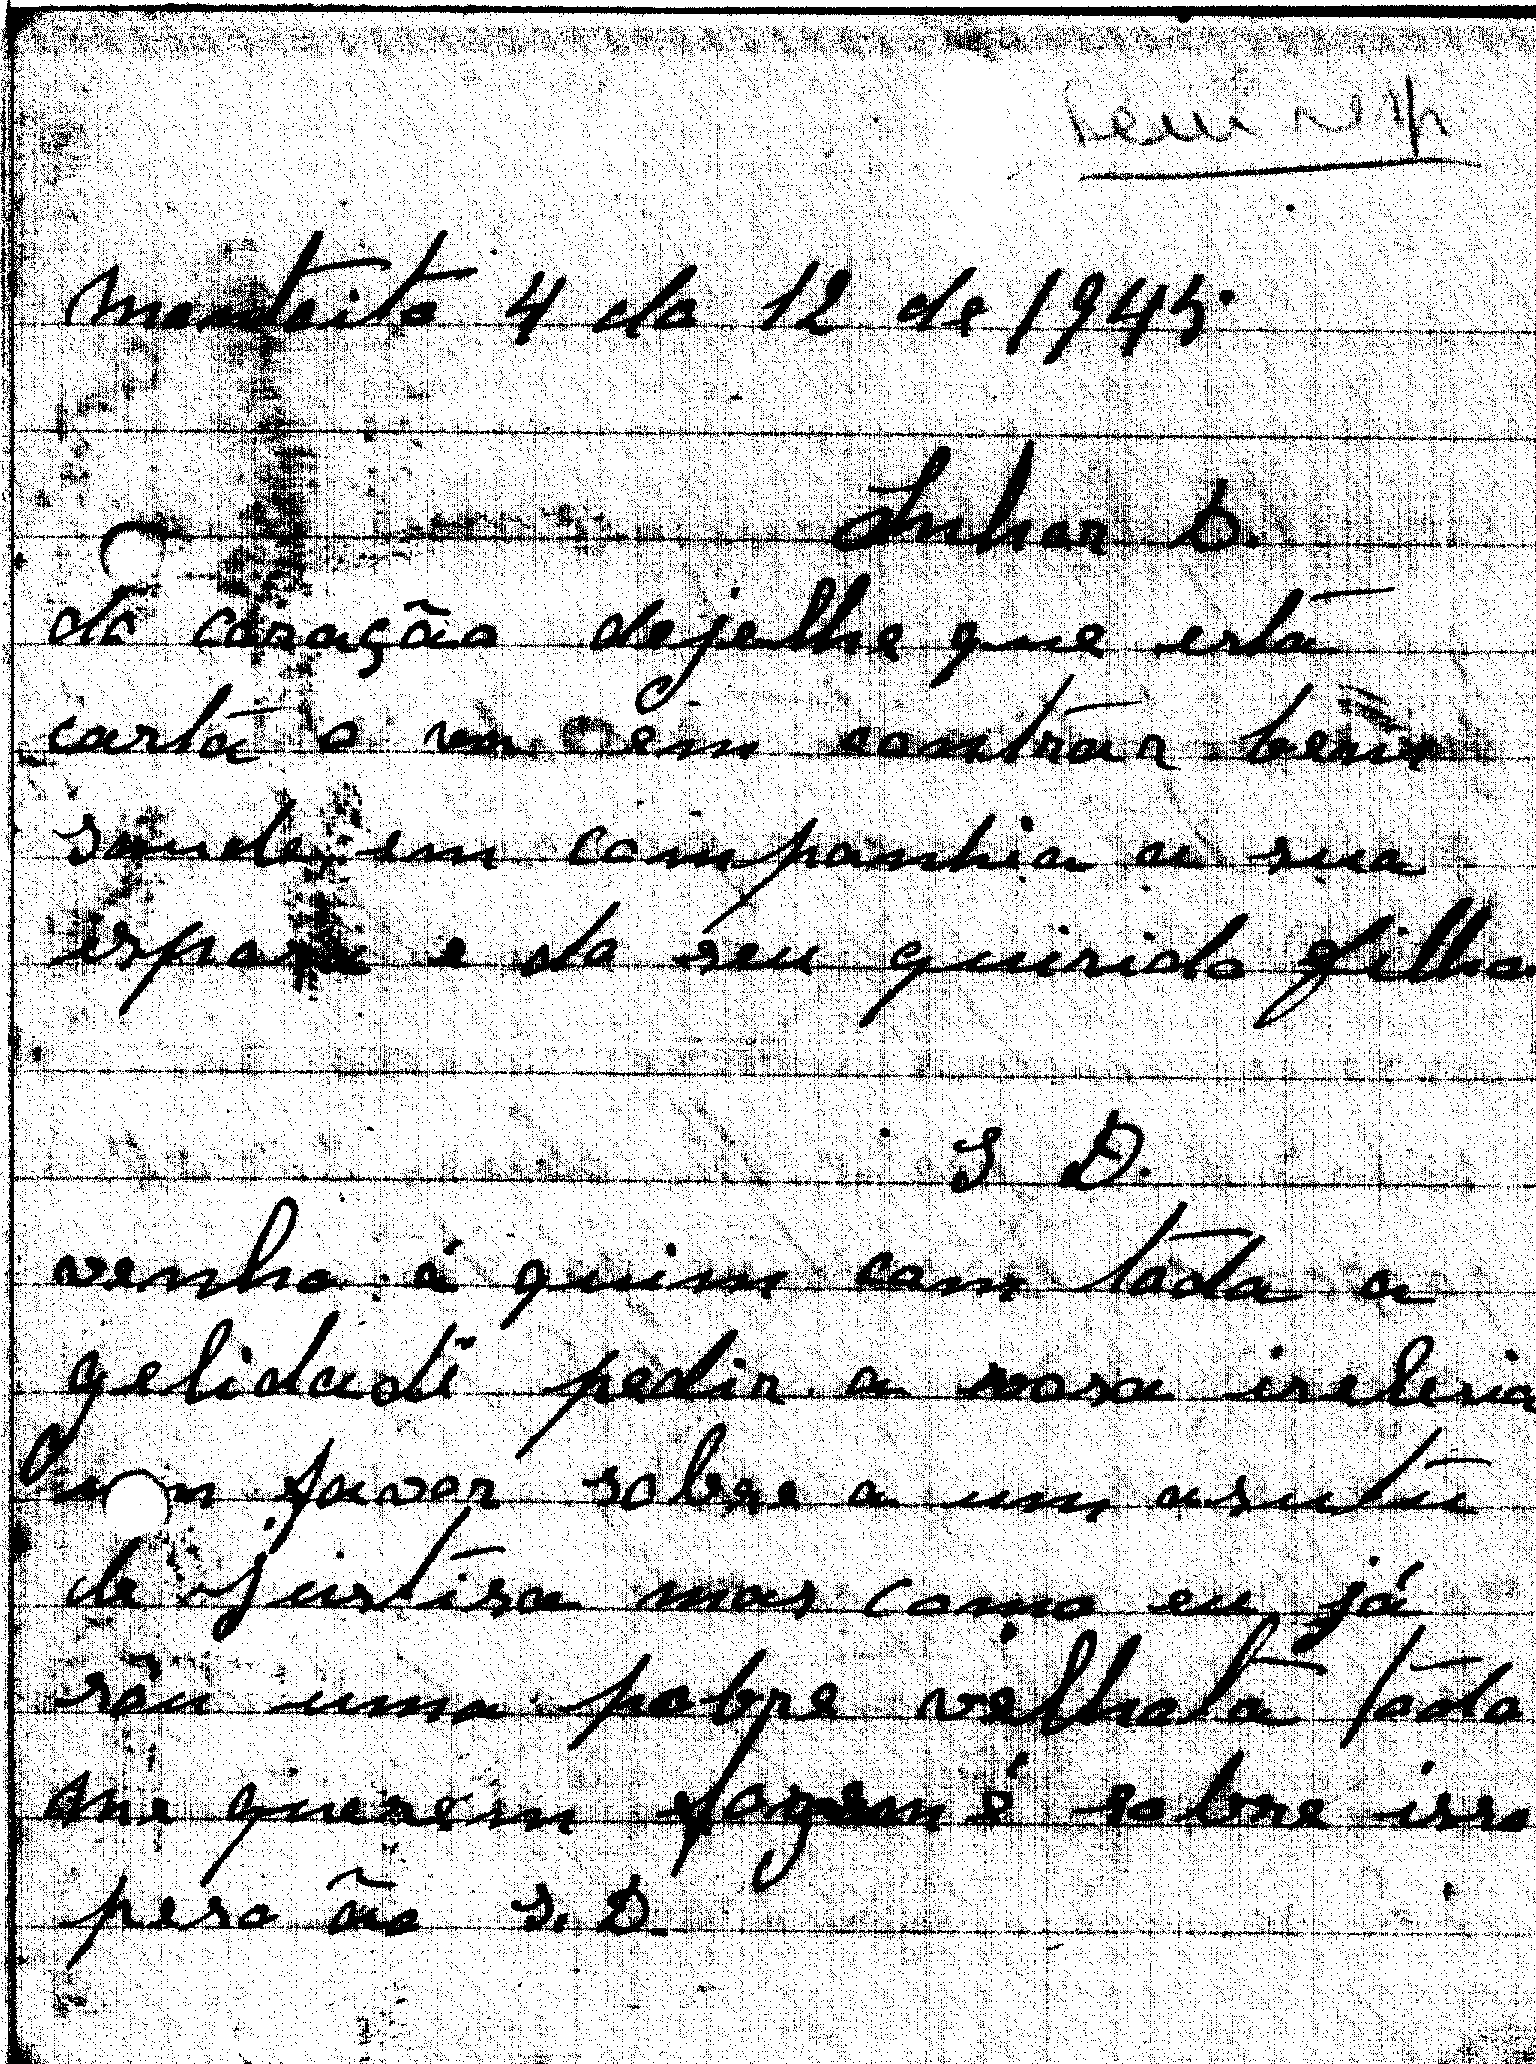 4 da 12 de 1945.
Inhor D.
do coração dejelhe que esta
carta o vm em contrar bem
saude em companhia a sua
espoza e do seu quirido filho
S D.
venho á quim com toda a
gelidade pedir a vosa iselencia
um favor sobre a um asutu
de Justisa mas como eu já
sou uma pobre velhota todo
me querem fazem é sobre isso
peso ão S. D.